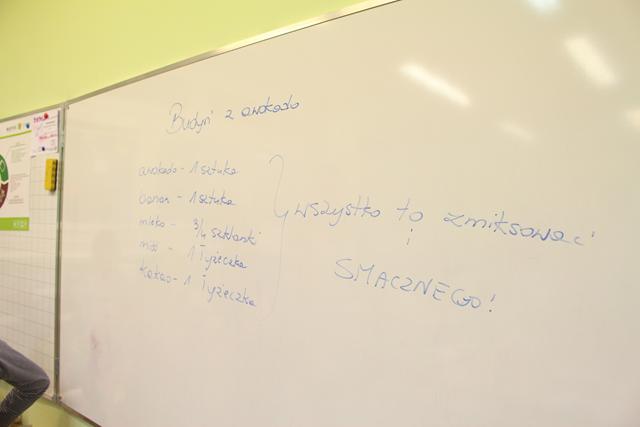 Budyń z awokado
awokado - 1 sztuka
banan - 1 sztuka
mleko - 3/4 szklanki
miód - 1 łyżeczka
kakao - 1 łyżeczka
wszystko to zmiksować
i
SMACZNEGO!